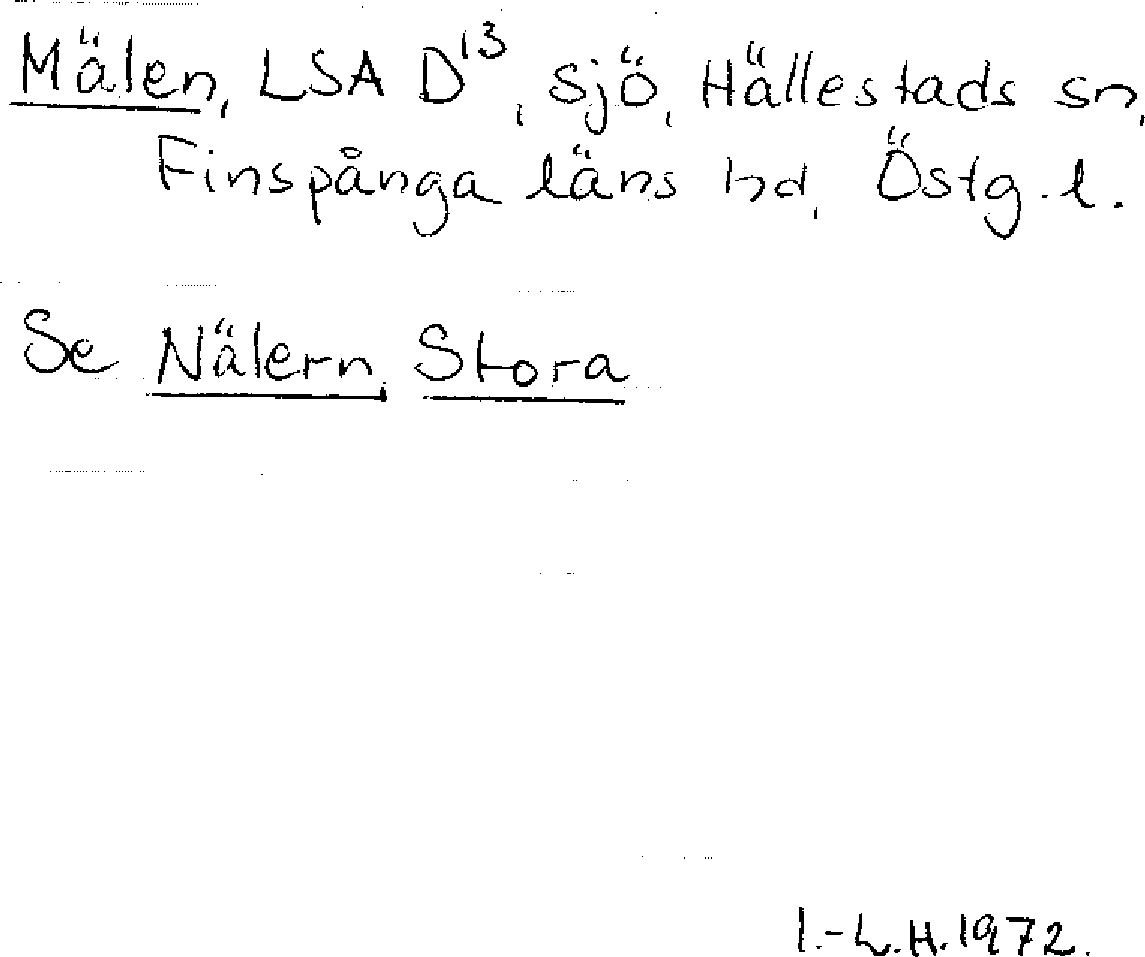 Mälen, LSA D¹³, sjö, Hällestads sn,
Finspånga läns hd, Östg.l.
Se Nälern, Stora
I.-L.H.1972.